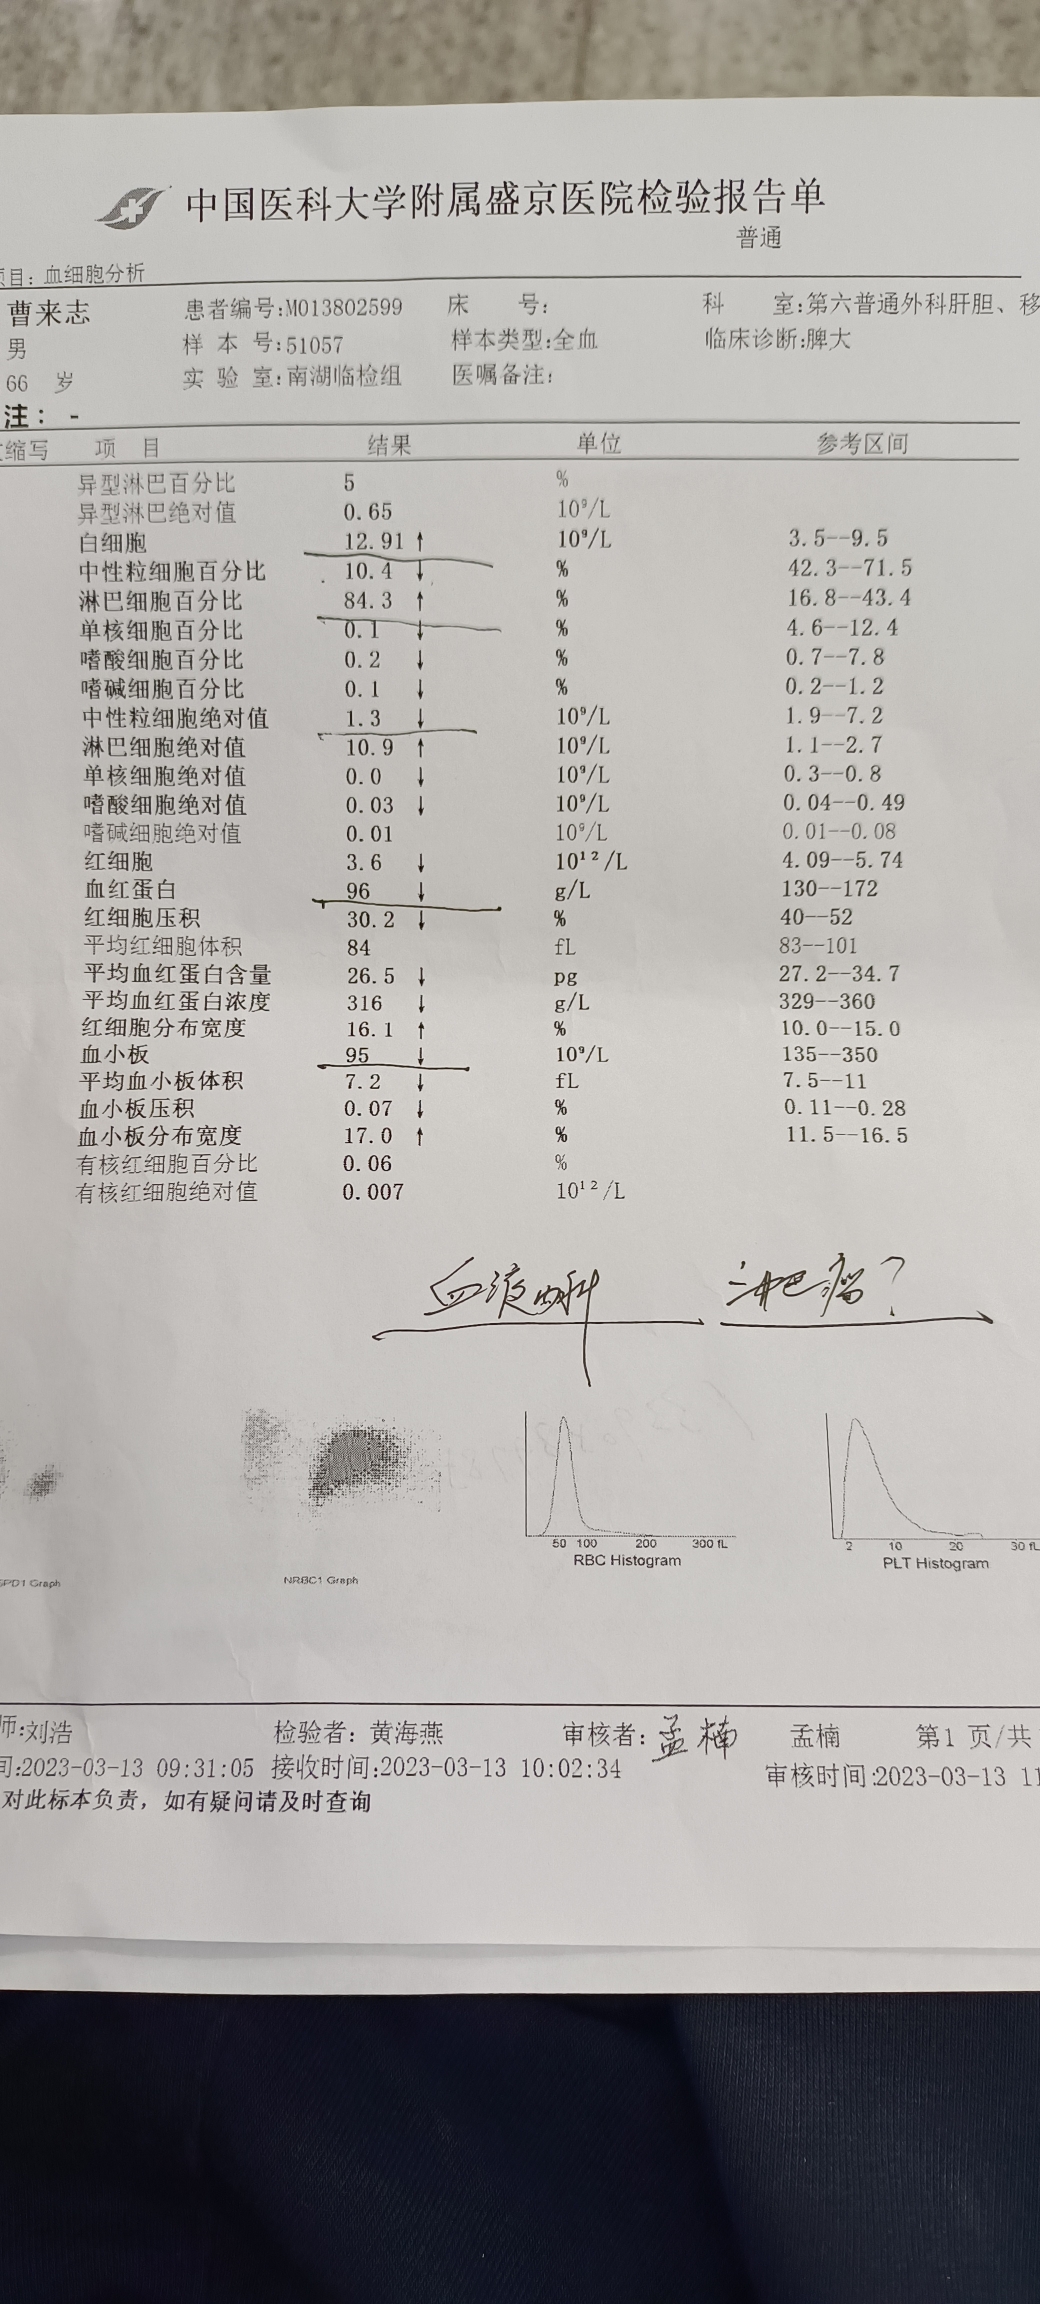 中国医科大学附属盛京医院检验报告单
普通
项目: 血细胞分析
曹来志 患者编号:M013802599 床 号: 科 室:第六普通外科肝胆、移
男 样 本 号:51057 样本类型:全血 临床诊断:脾大
66 岁 实 验 室:南湖临检组 医嘱备注:
注: -
缩写 项 目 结果 单位 参考区间
异型淋巴百分比 5 %
异型淋巴绝对值 0.65 10⁹/L
白细胞 12.91 ↑ 10⁹/L 3.5--9.5
中性粒细胞百分比 10.4 ↓ % 42.3--71.5
淋巴细胞百分比 84.3 ↑ % 16.8--43.4
单核细胞百分比 0.1 ↓ % 4.6--12.4
嗜酸细胞百分比 0.2 ↓ % 0.7--7.8
嗜碱细胞百分比 0.1 ↓ % 0.2--1.2
中性粒细胞绝对值 1.3 ↓ 10⁹/L 1.9--7.2
淋巴细胞绝对值 10.9 ↑ 10⁹/L 1.1--2.7
单核细胞绝对值 0.0 ↓ 10⁹/L 0.3--0.8
嗜酸细胞绝对值 0.03 ↓ 10⁹/L 0.04--0.49
嗜碱细胞绝对值 0.01 10⁹/L 0.01--0.08
红细胞 3.6 ↓ 10¹²/L 4.09--5.74
血红蛋白 96 ↓ g/L 130--172
红细胞压积 30.2 ↓ % 40--52
平均红细胞体积 84 fL 83--101
平均血红蛋白含量 26.5 ↓ pg 27.2--34.7
平均血红蛋白浓度 316 ↓ g/L 329--360
红细胞分布宽度 16.1 ↑ % 10.0--15.0
血小板 95 ↓ 10⁹/L 135--350
平均血小板体积 7.2 ↓ fL 7.5--11
血小板压积 0.07 ↓ % 0.11--0.28
血小板分布宽度 17.0 ↑ % 11.5--16.5
有核红细胞百分比 0.06 %
有核红细胞绝对值 0.007 10¹²/L
血液内科 淋巴瘤?
50 100 200 300 fL 2 10 20 30 fL
PD1 Graph NRBC1 Graph RBC Histogram PLT Histogram
师:刘浩 检验者: 黄海燕 审核者: 孟楠 孟楠 第1 页/共
间:2023-03-13 09:31:05 接收时间:2023-03-13 10:02:34 审核时间:2023-03-13 11
对此标本负责，如有疑问请及时查询